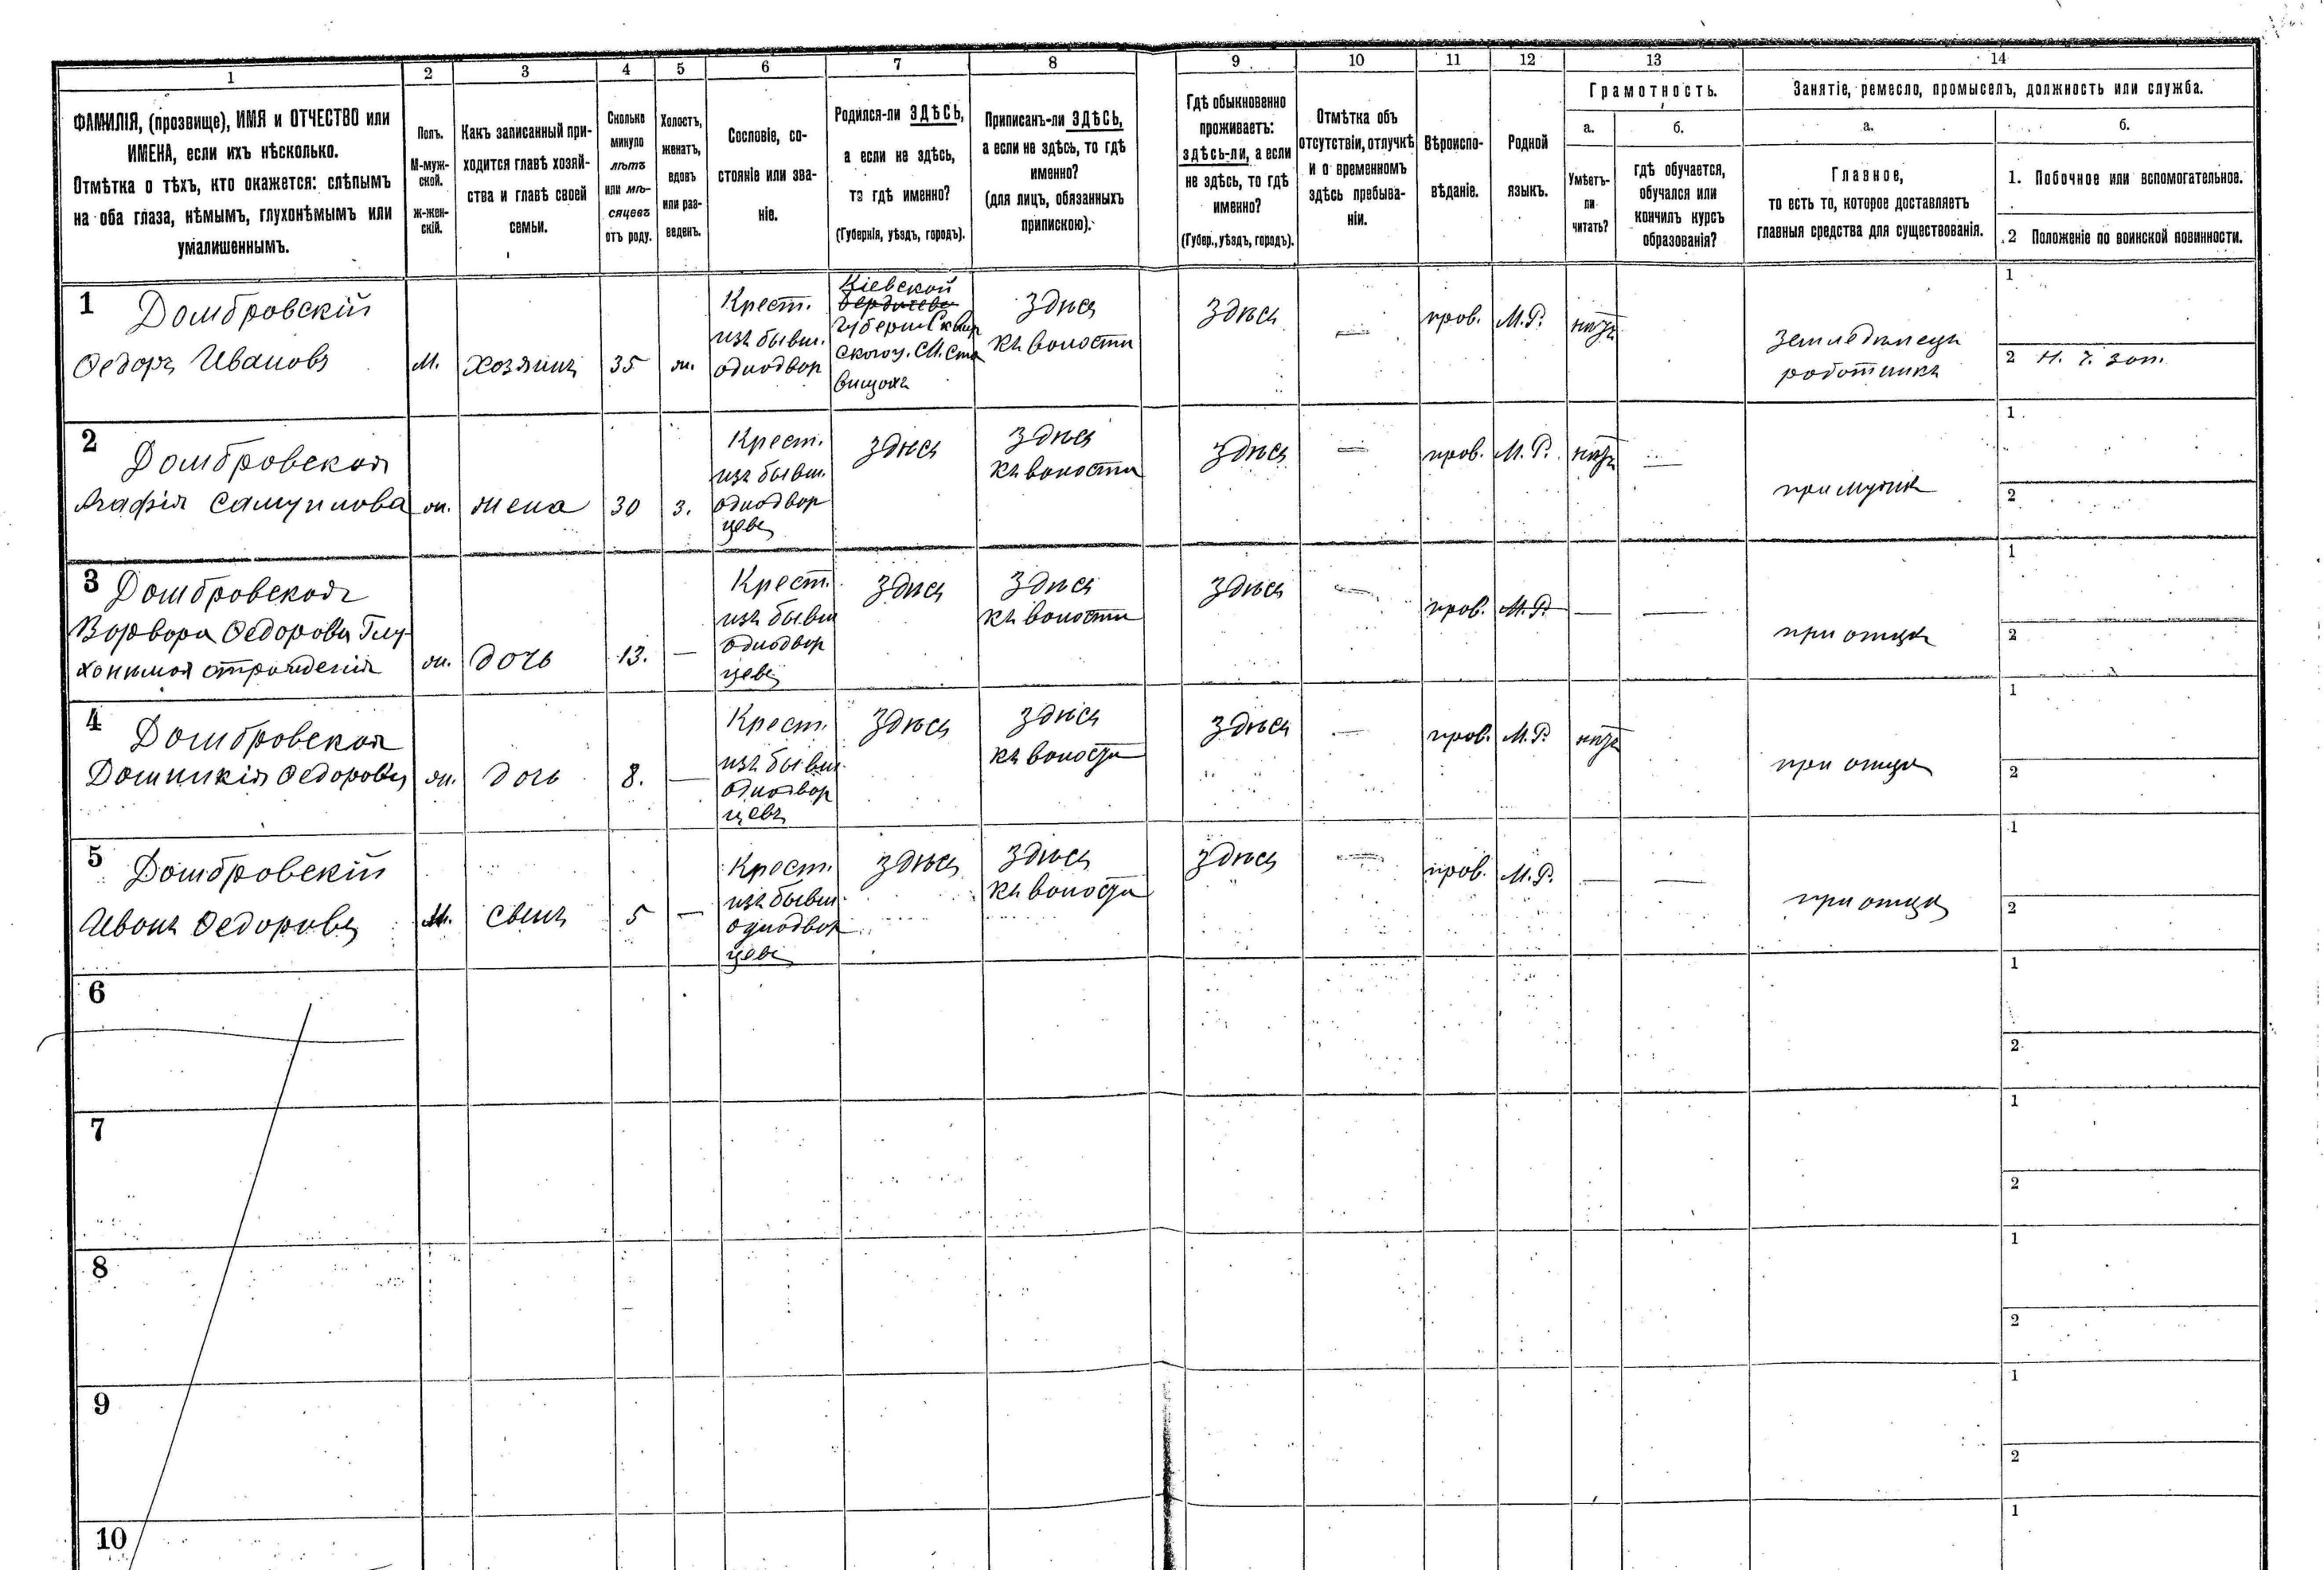 1 2 3 4 5 6 7 8 9 10 11 12 13 14
ФАМИЛІЯ, (прозвище), ИМЯ и ОТЧЕСТВО или
ИМЕНА, если ихъ нѣсколько.
Отмѣтка о тѣхъ, кто окажется: слѣпымъ
на оба глаза, нѣмымъ, глухонѣмымъ или
умалишеннымъ.
Полъ.
М-муж-
ской.
ж-жен-
скій.
Какъ записанный при-
ходится главѣ хозяй-
ства и главѣ своей
семьи.
Сколько
минуло
лѣтъ
или мѣ-
сяцевъ
отъ роду.
Холостъ,
женатъ,
вдовъ
или раз-
веденъ.
Сословіе, со-
стояніе или зва-
ніе.
Родился-ли ЗДѢСЬ,
а если не здѣсь,
то гдѣ именно?
(Губернія, уѣздъ, городъ).
Приписанъ-ли ЗДѢСЬ,
а если не здѣсь, то гдѣ
именно?
(для лицъ, обязанныхъ
припискою).
Гдѣ обыкновенно
проживаетъ:
здѣсь-ли, а если
не здѣсь, то гдѣ
именно?
(Губер., уѣздъ, городъ).
Отмѣтка объ
отсутствіи, отлучкѣ
и о временномъ
здѣсь пребыва-
ніи.
Вѣроиспо-
вѣданіе.
Родной
языкъ.
Грамотность.
а.
Умѣетъ-
ли
читать?
б.
гдѣ обучается,
обучался или
кончилъ курсъ
образованія?
Занятіе, ремесло, промыселъ, должность или служба.
а.
Главное,
то есть то, которое доставляетъ
главныя средства для существованія.
б.
1. Побочное или вспомогательное.
2 Положеніе по воинской повинности.
1 Домбровскій
Ѳедоръ Ивановъ
М.
хозяинъ
35
ж.
Крест.
изъ бывш.
однодвор
Кіевской
Бердичевс
губерніи Сквир
ского у. М. Ста
вищахъ
Здѣсь
къ волости
Здѣсь
—
прав.
М.Р.
нѣтъ
земледѣлецъ
работникъ
1
2 Н. ч. зап.
2 Домбровская
Агафія Самуилова
ж.
жена
30
з.
Крест.
изъ бывш.
однодвор
цевъ
здѣсь
здѣсь
къ волости
здѣсь
—
прав.
М. Р.
нѣтъ
—
при мужѣ
1
2
3 Домбровская
Варвара Ѳедорова Глу-
хонѣмая отрожденія
ж.
дочь
13.
—
Крест.
изъ бывш
однодвор
цевъ
здѣсь
здѣсь
къ волости
здѣсь
—
прав.
М.Р.
—
—
при отцѣ
1
2
4 Домбровская
Домникія Ѳедорова
ж.
дочь
8.
—
Крест.
изъ бывш.
однодвор
цевъ
здѣсь
здѣсь
къ волости
здѣсь
—
прав.
М.Р.
нѣтъ
при отцѣ
1
2
5 Домбровскій
Иванъ Ѳедоровъ
М.
сынъ
5
—
Крест.
изъ бывш.
однодвор
цевъ
здѣсь
здѣсь
къ волости
здѣсь
—
прав.
М.Р.
—
—
при отцѣ
1
2
6
1
2
7
1
2
8
1
2
9
1
2
10
1